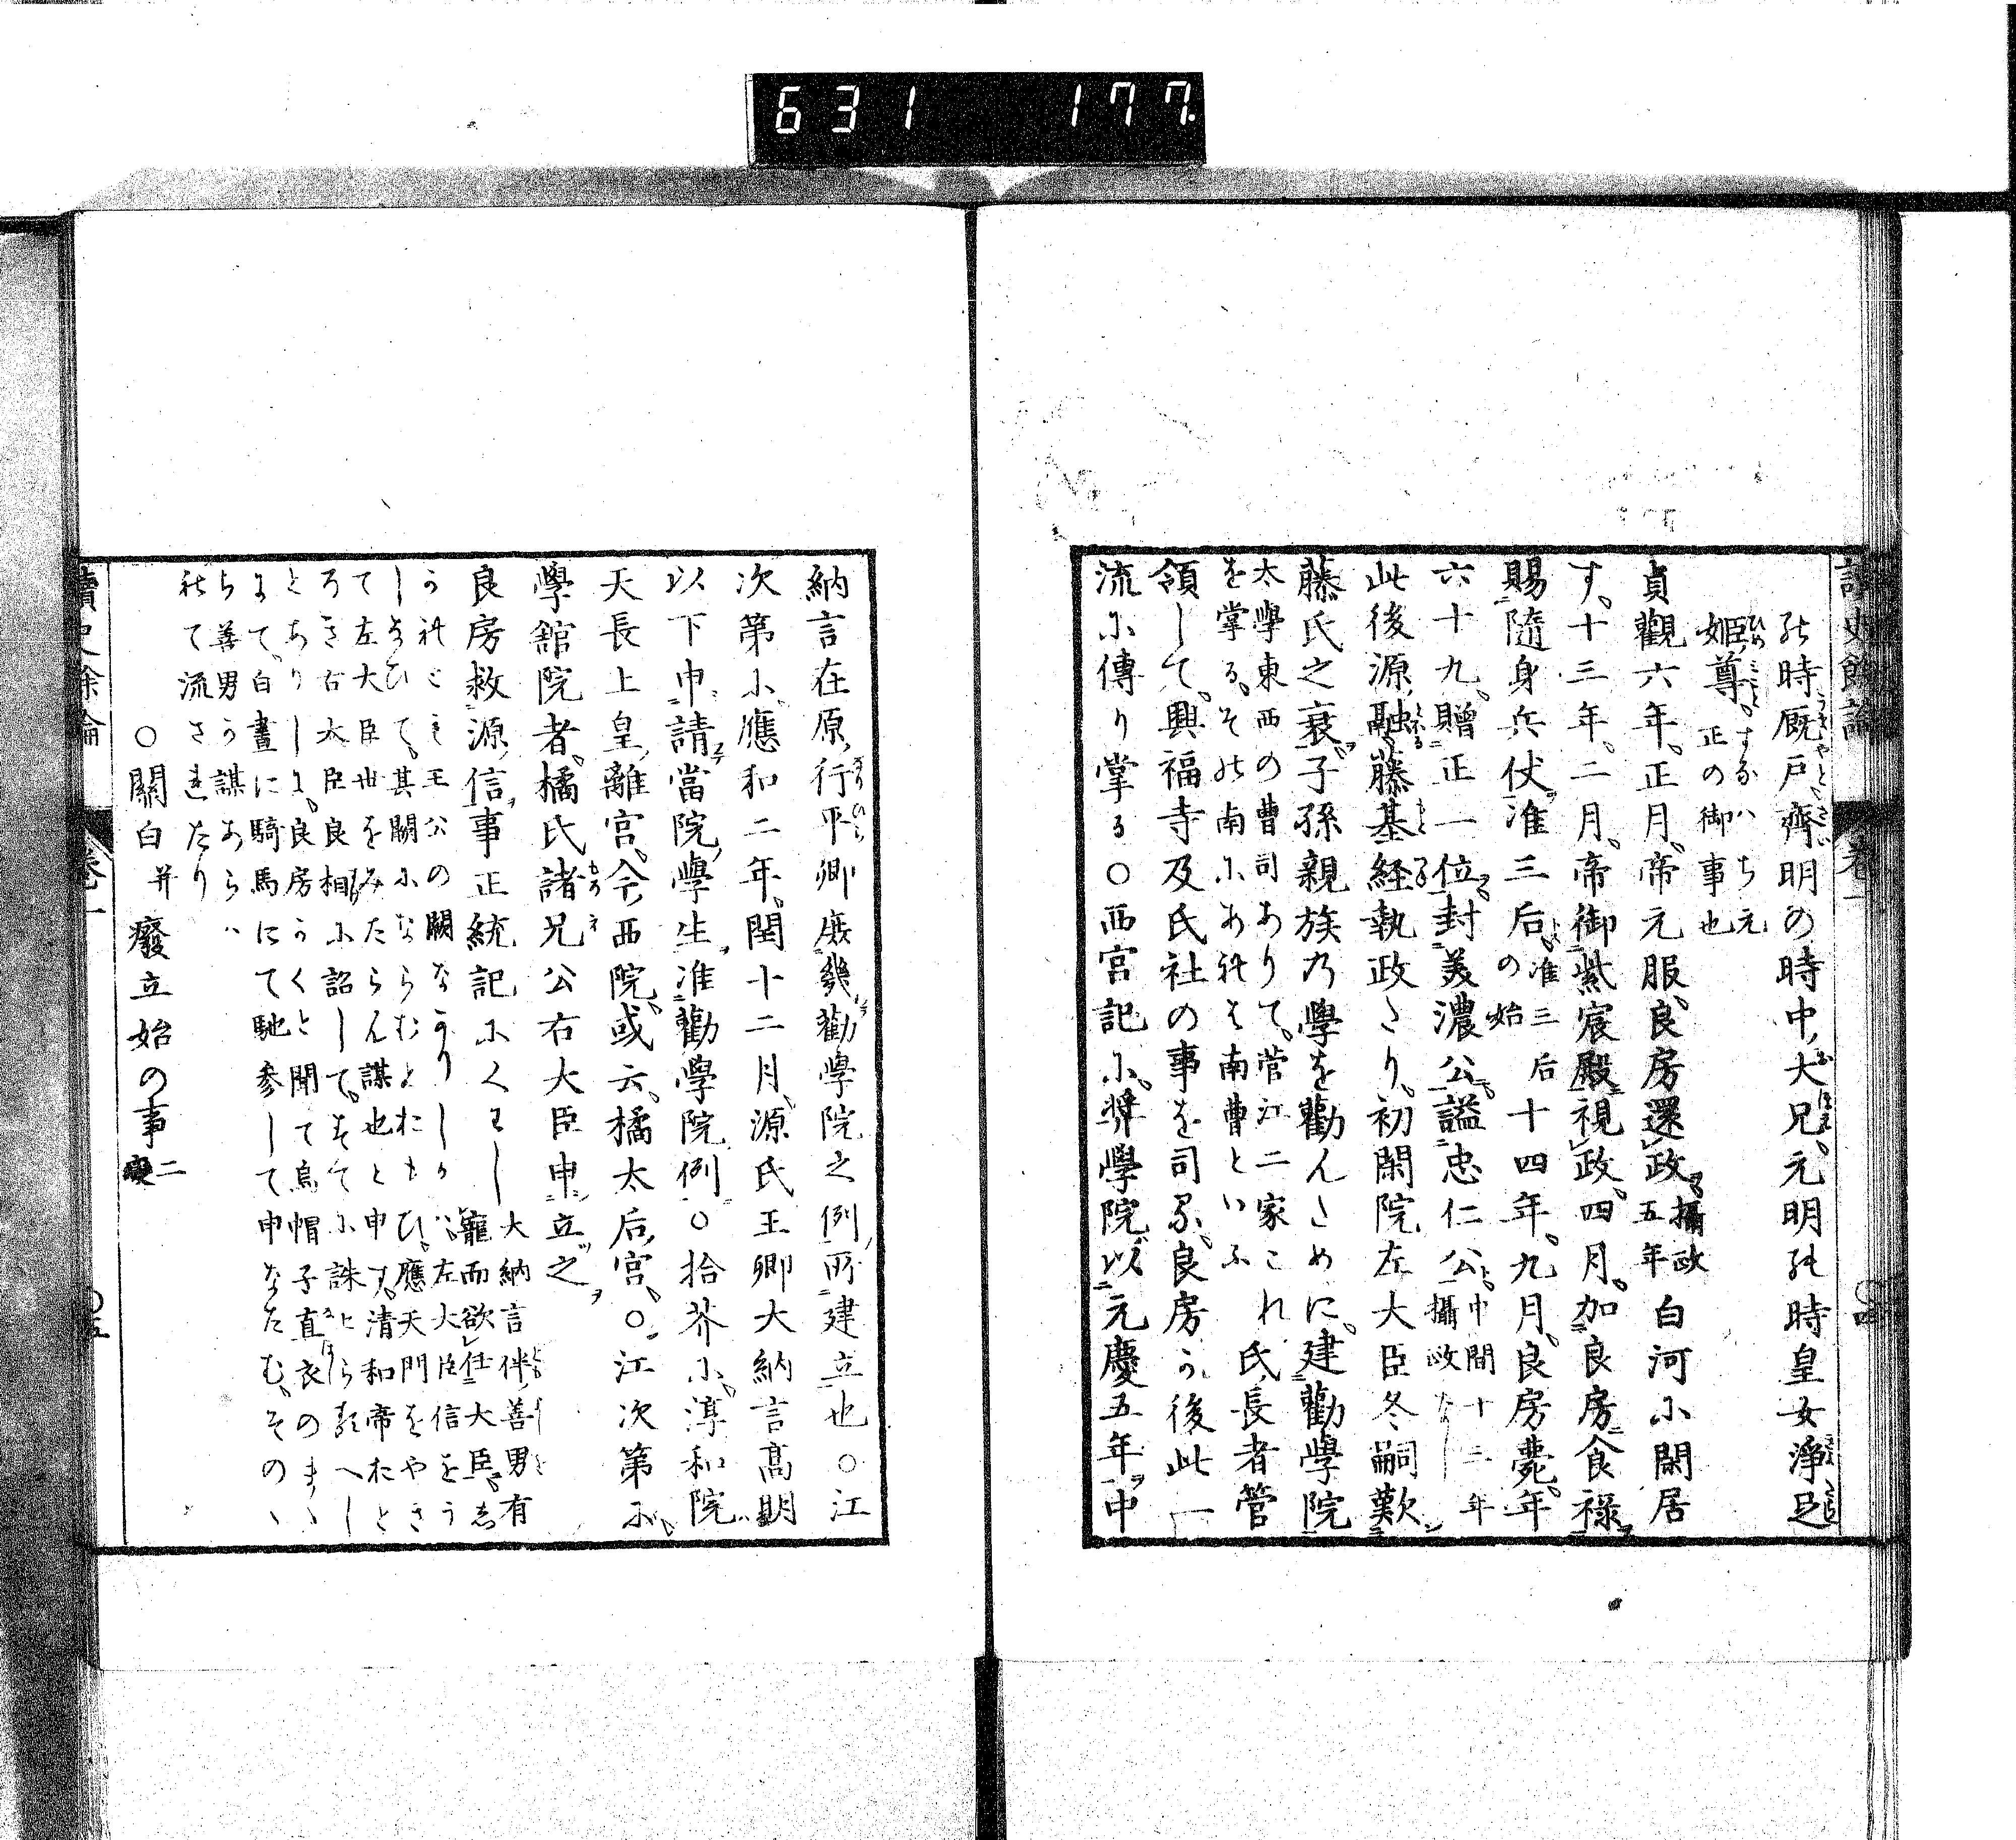 631 177.
讀史餘論
卷一
〇四
の時厩戸、齊明の時中大兄、元明の時皇女淨足
姫尊。すなハち元
正の御事也
貞觀六年。正月。帝元服。良房還政。攝政
五年
白河に閑居
す。十三年。二月。帝御紫宸殿視政。四月。加良房食祿
賜隨身兵仗准三后。准三后
の始
十四年。九月。良房薨。年
六十九。贈正一位。封美濃公。謚忠仁公。中間十二年
攝政なし
此後源融藤基経執政たり。初閑院左大臣冬嗣歎
藤氏之衰。子孫親族乃學を勸んために。建勸學院
太學東西の曹司ありて。菅江二家これ
を掌る。その南にあれは南曹といふ
氏長者管
領して。興福寺及氏社の事を司る。良房う後此一
流に傳り掌る〇西宮記に。奬學院以元慶五年中
納言在原行平卿廢幾勸學院之例所建立也〇江
次第に。應和二年。閏十二月。源氏王卿大納言高明
以下申請當院學生准勸學院例〇拾芥に。淳和院
天長上皇離宮。今西院。或云橘太后宮。〇江次第に。
學舘院者。橘氏諸兄公右大臣申立之
良房救源信事正統記にくはし
大納言伴善男有
寵而欲任大臣。志
うれども王公の闕なかりしかハ。左大臣信をう
しなひて。其闕にならむとおもひ。應天門をやき
て左大臣世をみたらん謀也と申ス。清和帝おと
ろき右大臣良相に詔して。すてに誅せらるへし
とありしに。良房うくと聞て烏帽子直衣のまゝ
にて。白晝に騎馬にて馳参して申なたむ。そのゝ
ち善男う謀あらハ
れて流されたり
〇關白并廢立始の事 二變
讀史餘論
卷一
〇五